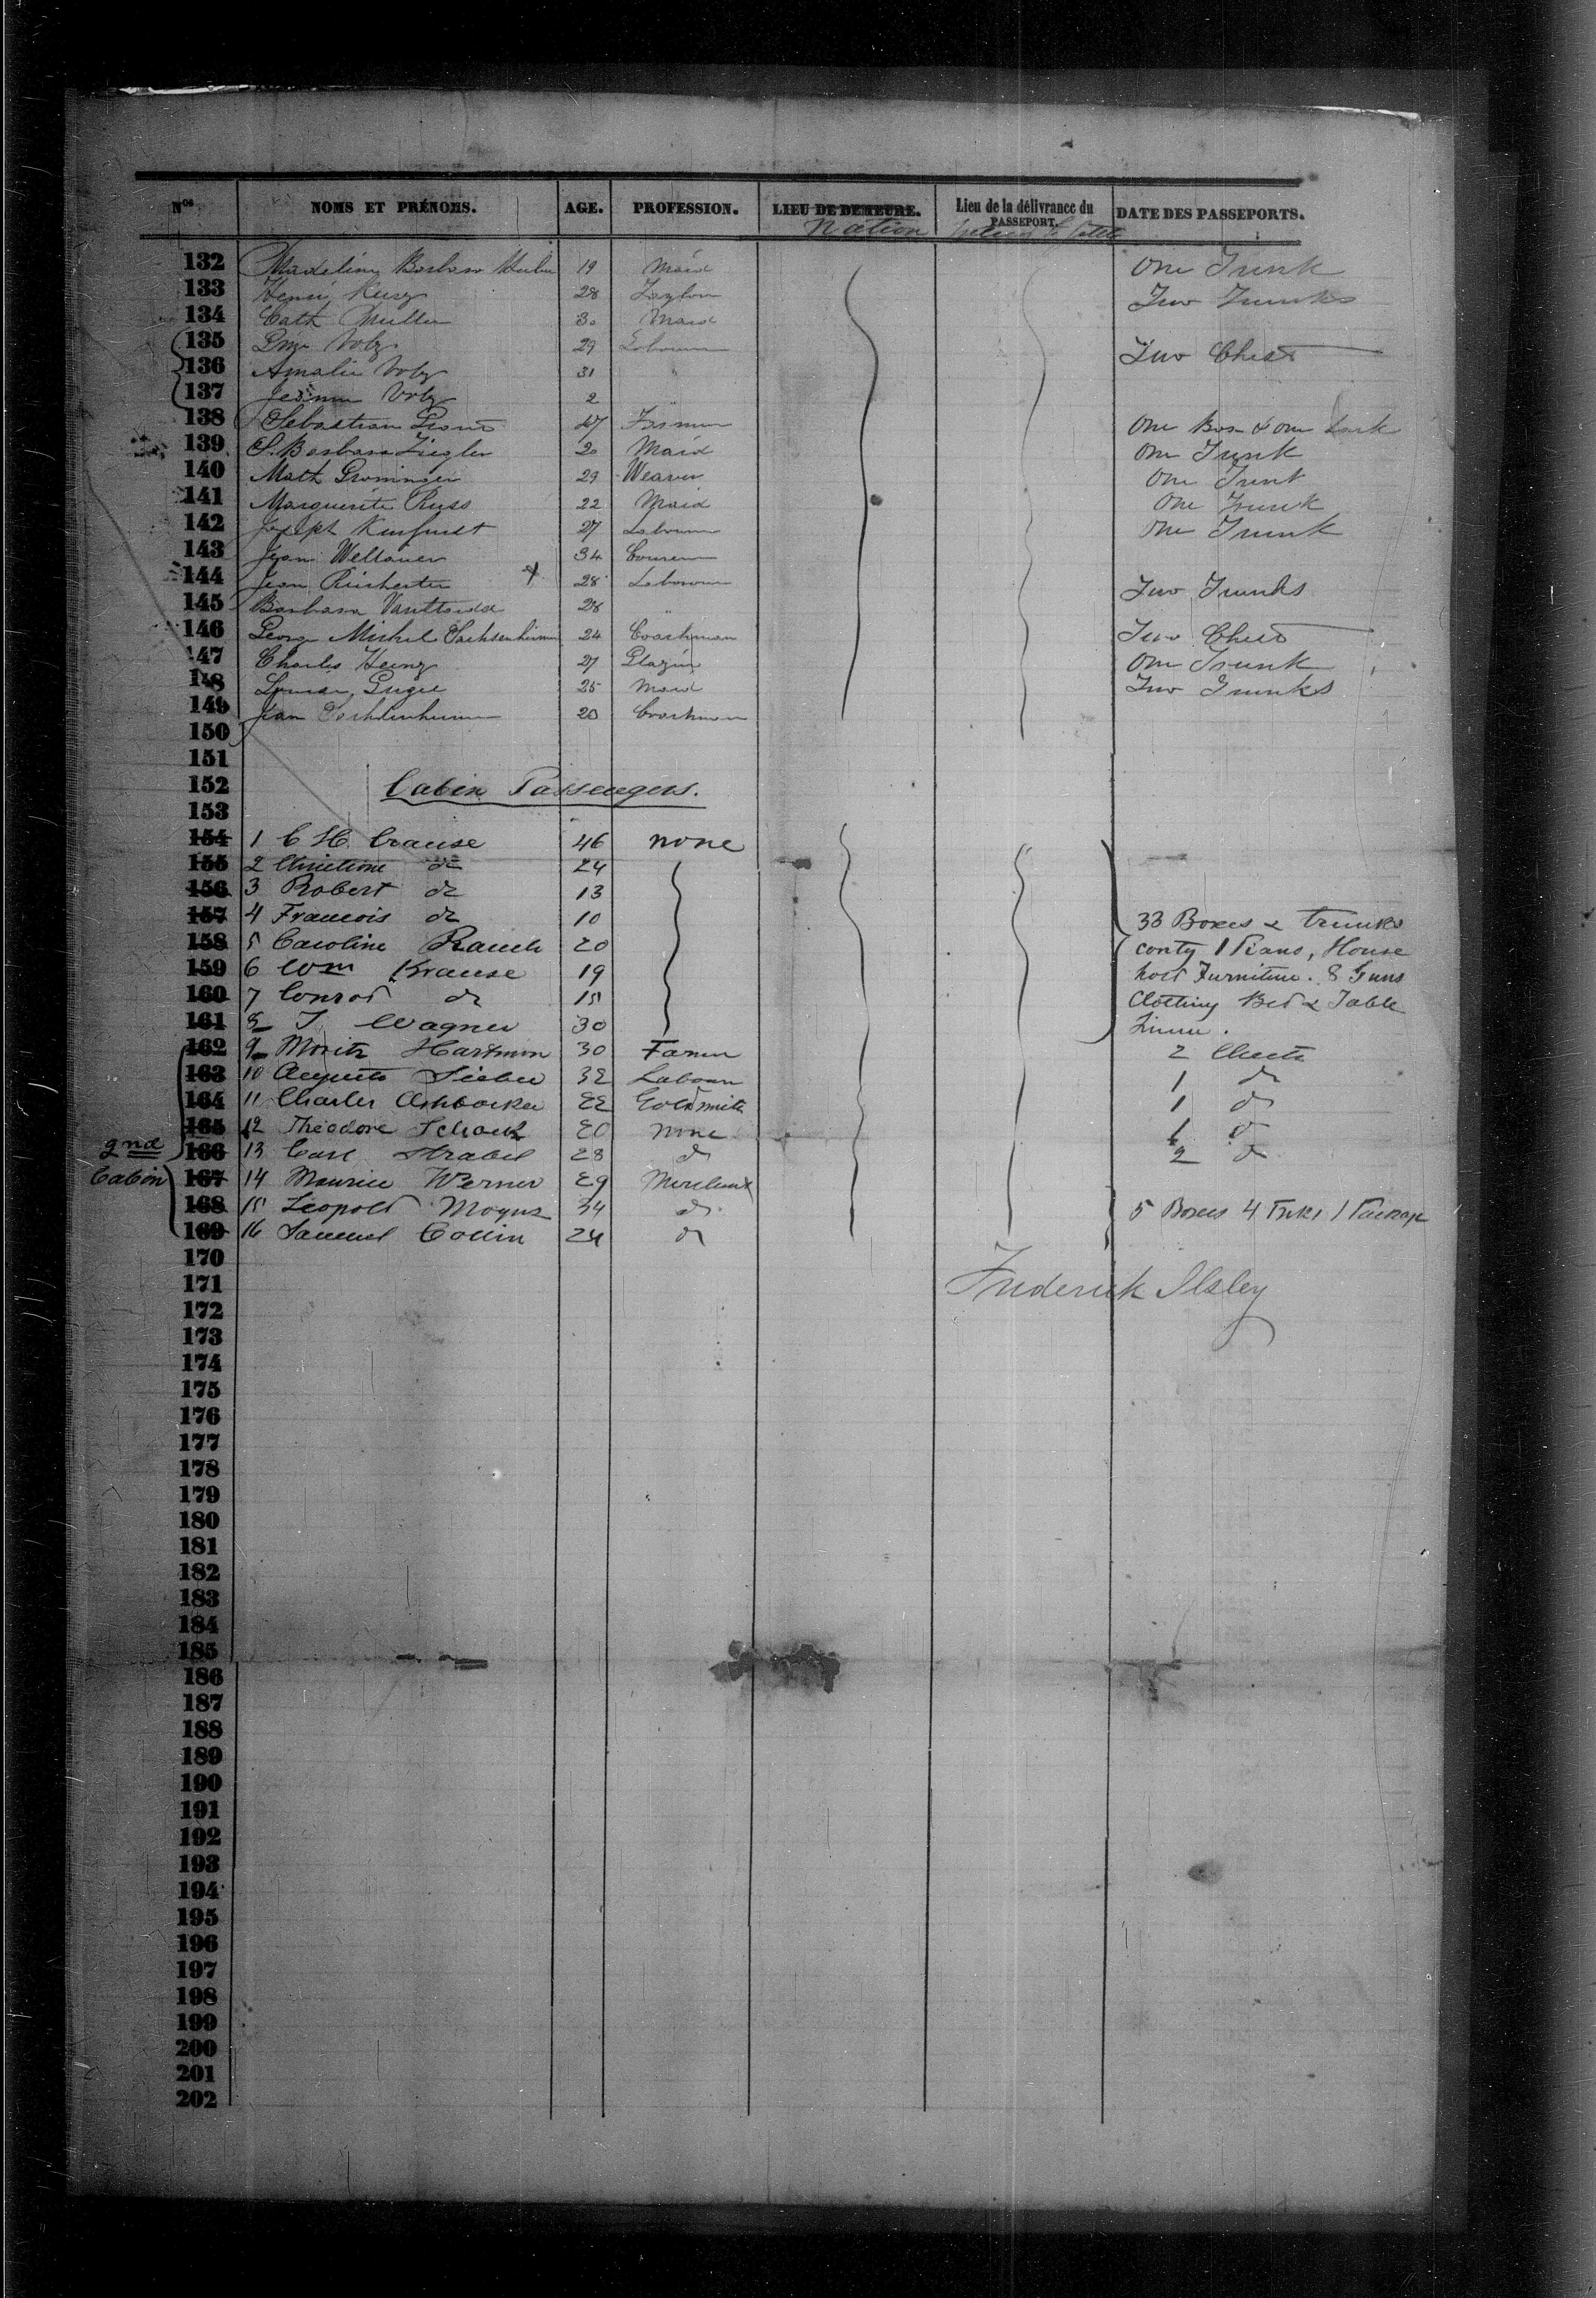 Nos NOMS ET PRÉNOMS. AGE. PROFESSION. LIEU DE DEMEURE. Lieu de la délivrance du PASSEPORT. DATE DES PASSEPORTS.
Nation
132 Madeline Barbara 19 Maid One Trunk
133 Henri 28 Taylor Two Trunks
134 Cath Muller 30 Maid
135 Volz 29 Two Chest
136 Amalie Volz 31 "
137 Volz 2
138 Sebastian 47 Farmer One Box & one
139 S. Barbara Ziegler 20 Maid One Trunk
140 Math Groninger 29 Weaver One Trunk
141 Marguerite Russ 22 Maid One Trunk
142 Joseph 27 Labourer One Trunk
143 Jean 34
144 Jean 28 Labourer Two Trunks
145 Barbara 28 "
146 George Michel Sachsenheimer 24 Coachman Two Chest
147 Charles Heinz 27 Glazier One Trunk
148 Louise 25 Maid Two Trunks
149 Jean 20 Coachman
150
151
152 Cabin Passengers.
153
154 1 C H. Crause 46 none
155 2 Christine do 24
156 3 Robert do 13
157 4 Francois do 10 33 Boxes & trunks
158 5 Caroline Rauch 20 contg 1 Piano, House
159 6 Wm Krause 19 hold Furniture. 8 Guns
160 7 Conrad do 15 Clothing Bed & Table
161 8 J. Wagner 30 Linnen.
162 9 Moritz Hartmon 30 Farmer 2 Chests
163 10 Auguste 32 Labour 1 do
164 11 Charles 22 Goldsmith 1 do
165 12 Theodore 20 none do
2nd 166 13 Carl Strabel 28 do 2 do
Cabin 167 14 Maurice Werner 29 Merchant
168 15 Leopold 34 do 5 Boxes 4 Tnks 1 Package
169 16 Samuel 24 do
170
171 Frederick Ilsley
172
173
174
175
176
177
178
179
180
181
182
183
184
185
186
187
188
189
190
191
192
193
194
195
196
197
198
199
200
201
202